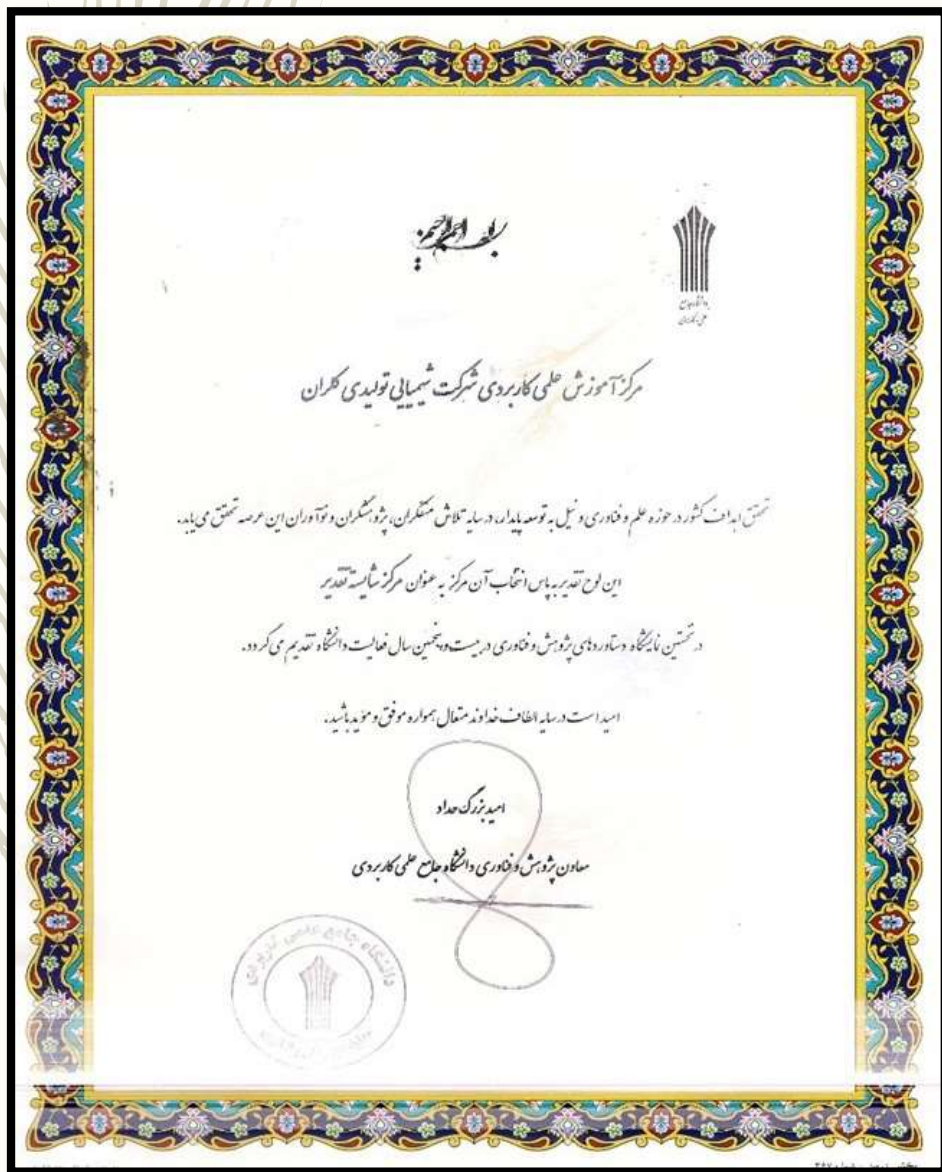 بسم الله الرحمن الرحیم
دانشگاه جامع
علمی کاربردی
مرکز آموزش علمی کاربردی شرکت شیمیایی تولیدی کلران
تحقق اهداف کشور در حوزه علم و فناوری و نیل به توسعه پایدار، در سایه تلاش متفکران، پژوهشگران و نوآوران این عرصه تحقق می یابد.
این لوح تقدیر به پاس انتخاب آن مرکز به عنوان مرکز شایسته تقدیر
در نخستین نمایشگاه دستاوردهای پژوهش و فناوری در بیست و پنجمین سال فعالیت دانشگاه تقدیم می گردد.
امید است در سایه الطاف خداوند متعال همواره موفق و موید باشید.
امید بزرگ حداد
معاون پژوهش و فناوری دانشگاه جامع علمی کاربردی
دانشگاه جامع علمی کاربردی